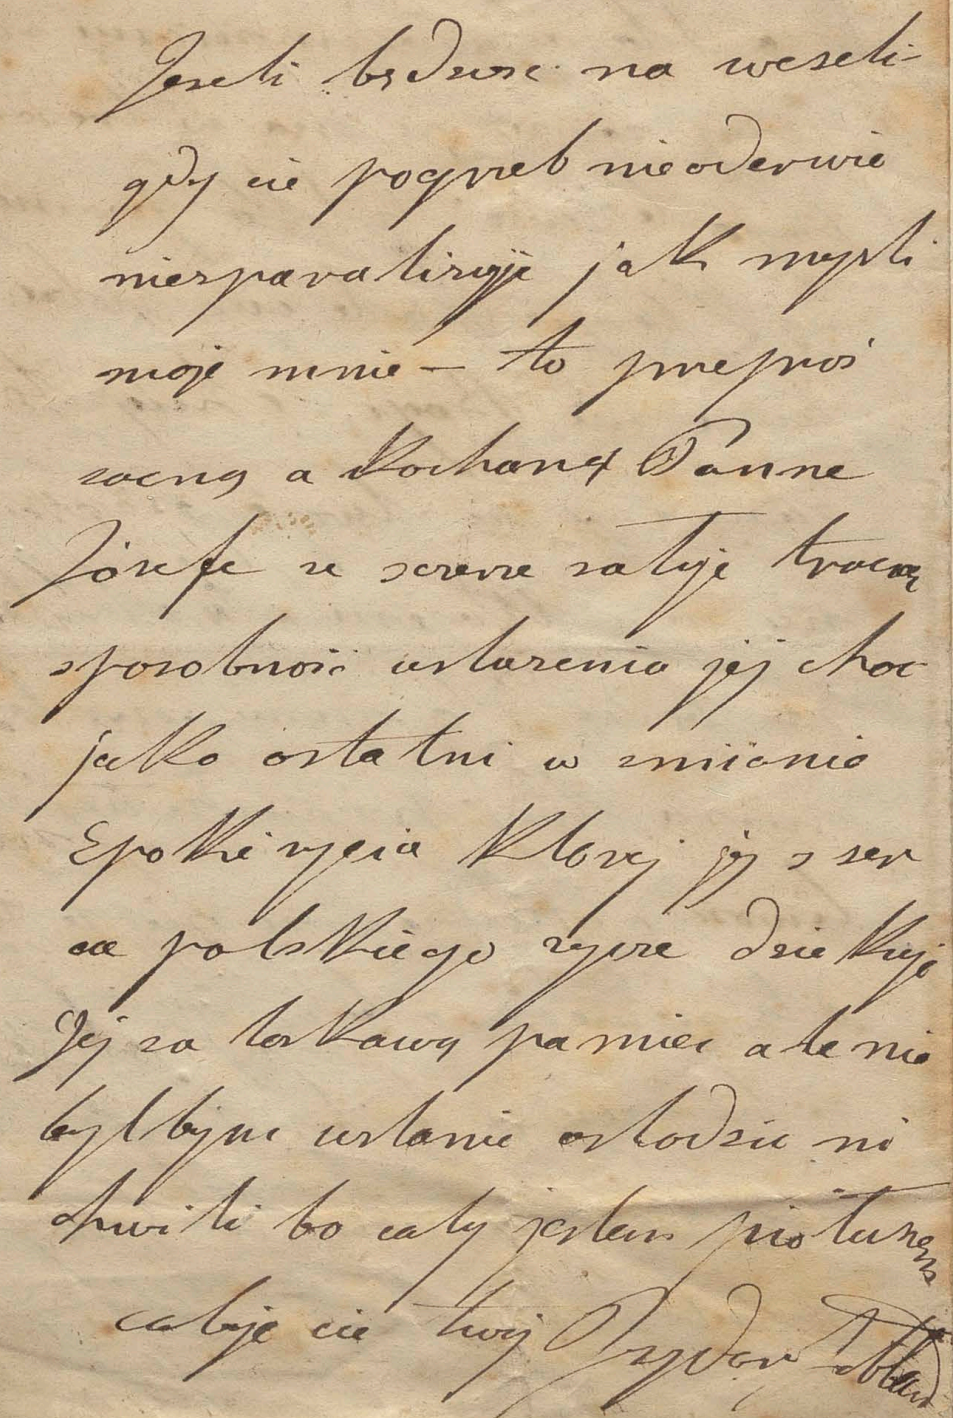 Jeseli będziesz na weseli-
gdy cie pogrzeb nieoderwie
niesparalizuje jak mysli
moje mnie – to przeproś
zacną a kochaną Panne
Józefe ze szczerze załuje tracąc
sposobność usłużenia jej choć
jako ostatni w zmianie
Epoki zycia ktorej jej z ser
ca polskiego zycze dziekuje
Jej za łaskawą pamieć ale nie
byłbym w stanie osłodzić ni
chwili bo cały jestem piołunem
całuje cie twój Izydor